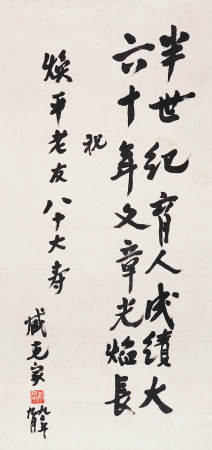 半世纪育人成绩大
六十年文章光焰长
祝
焕平老友八十大寿
臧克家
九〇年
九月